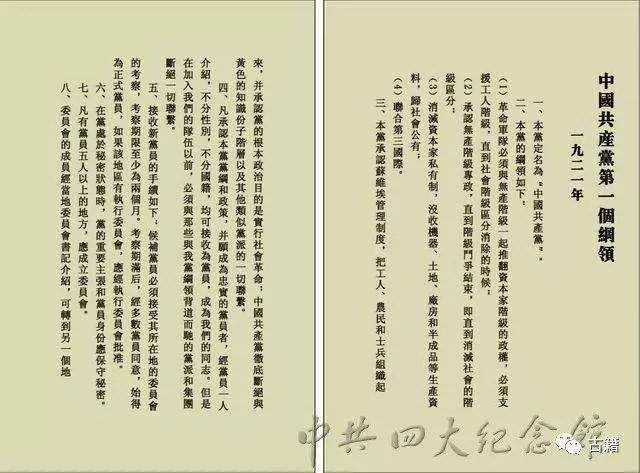 中國共產黨第一個綱領
一九二一年
一、本黨定名為“中國共產黨”。
二、本黨的綱領如下：
（1）革命軍隊必須與無產階級一起推翻資本家階級的政權，必須支
援工人階級，直到社會階級區分消除的時候；
（2）承認無產階級專政，直到階級鬥爭結束，即直到消滅社會的階
級區分；
（3）消滅資本家私有制，沒收機器、土地、廠房和半成品等生產資
料，歸社會公有；
（4）聯合第三國際。
三、本黨承認蘇維埃管理制度，把工人、農民和士兵組織起
來，并承認黨的根本政治目的是實行社會革命；中國共產黨徹底斷絕與
黃色的知識份子階層以及其他類似黨派的一切聯繫。
四、凡承認本黨黨綱和政策，并願成為忠實的黨員者，經黨員一人
介紹，不分性別，不分國籍，均可接收為黨員，成為我們的同志。但是
在加入我們的隊伍以前，必須與那些與我黨綱領背道而馳的黨派和集團
斷絕一切聯繫。
五、接收新黨員的手續如下：候補黨員必須接受其所在地的委員會
的考察，考察期限至少為兩個月。考察期滿后，經多數黨員同意，始得
為正式黨員，如果該地區有執行委員會，應經執行委員會批准。
六、在黨處於秘密狀態時，黨的重要主張和黨員身份應保守秘密。
七、凡有黨員五人以上的地方，應成立委員會。
八、委員會的成員經當地委員會書記介紹，可轉到另一個地
中共四大纪念館
古籍